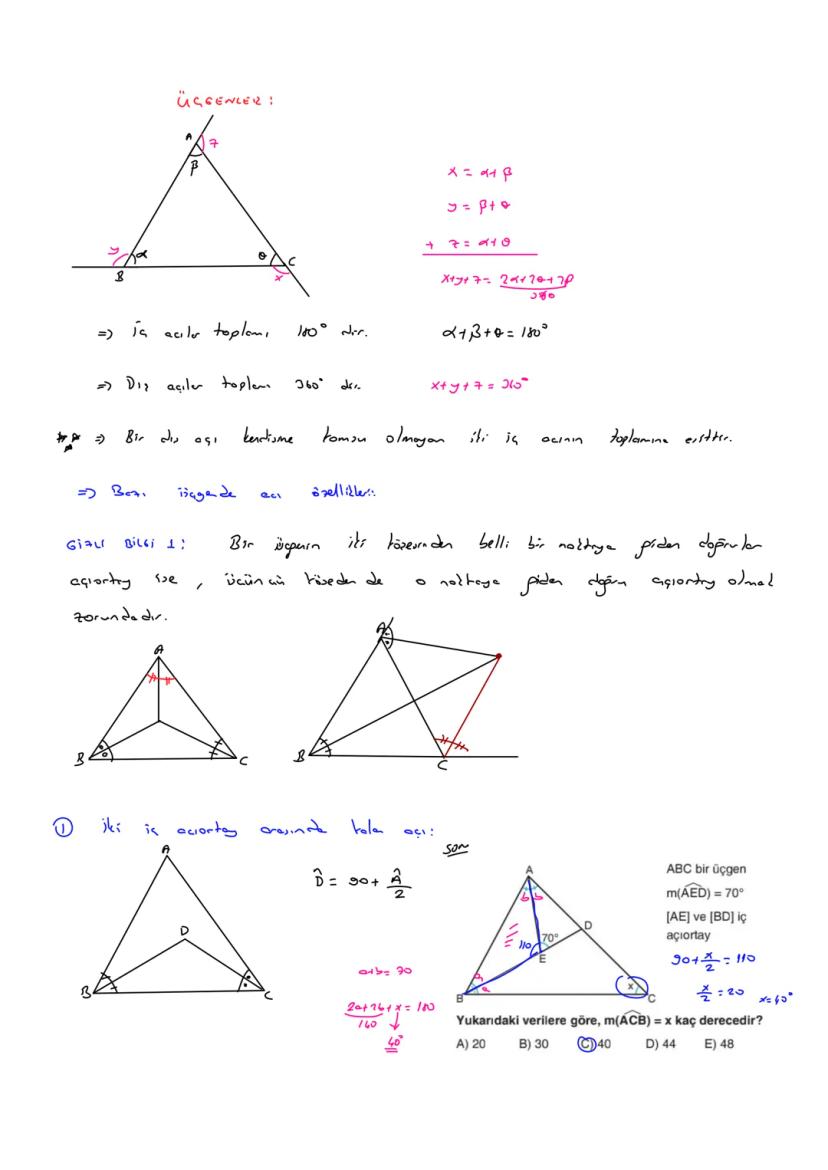 ÜÇGENLER:
A
z
β
y
α
θ
C
B
x
x = α+β
y = β+θ
+ z = α+θ
x+y+z = 2α+2θ+2β
360
=> iç açılar toplamı 180° dir.
α+β+θ = 180°
=> Dış açılar toplamı 360° dir.
x+y+z = 360°
=> Bir dış açı kendisine komşu olmayan iki iç açının toplamına eşittir.
=> Bazı üçgende açı özellikleri:
GİZLİ BİLGİ 1: Bir üçgenin iki köşesinden belli bir noktaya giden doğrular
açıortay ise, üçüncü köşeden de o noktaya giden doğru açıortay olmak
zorundadır.
A
B
C
A
B
C
① iki iç açıortay arasında kalan açı:
A
D
B
C
D̂ = 90 + Â/2
soru
a+b = 70
2a+2b+x = 180
140
40°
A
b b
D
110
70°
E
a
a
B
x
C
ABC bir üçgen
m(AED) = 70°
[AE] ve [BD] iç
açıortay
90 + x/2 = 110
x/2 = 20
x = 40°
Yukarıdaki verilere göre, m(ACB) = x kaç derecedir?
A) 20 B) 30 C) 40 D) 44 E) 48